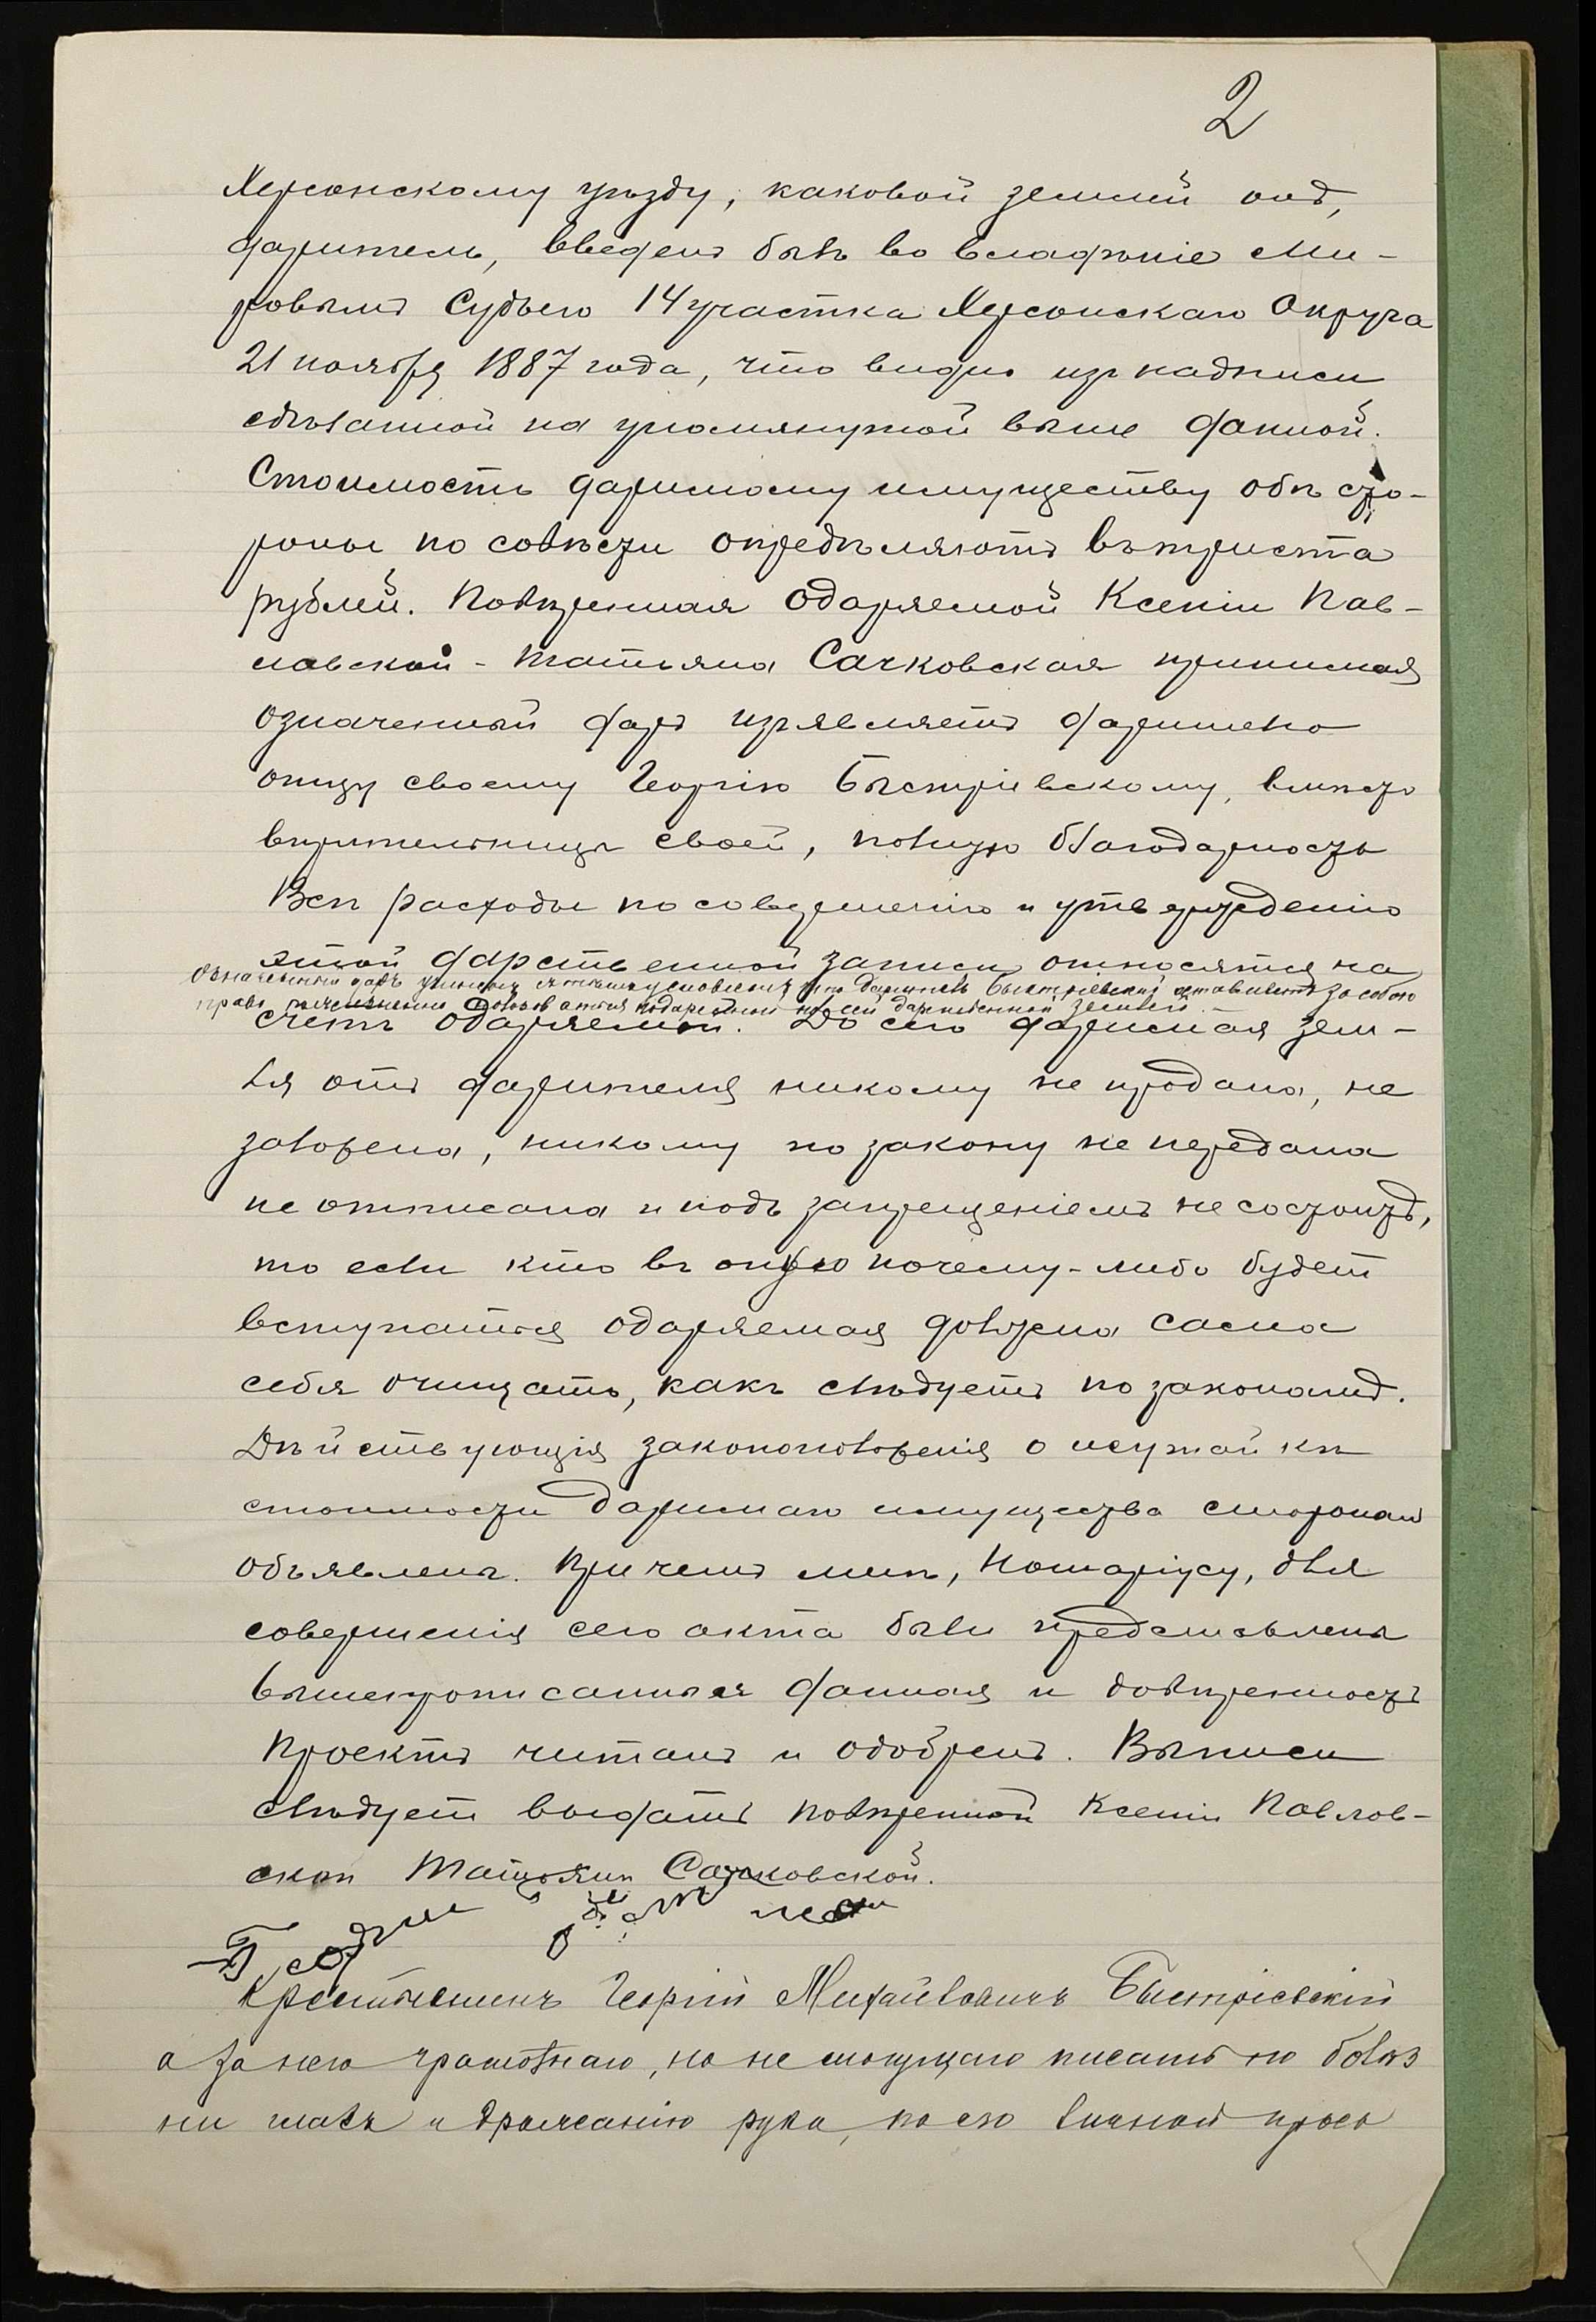 2
Херсонскому уѣзду, каковой землей онъ,
даритель, введенъ былъ во владѣніе Ми-
ровымъ Судьею 14 участка Херсонскаго Округа
21 ноября 1887 года, что видно изъ надписи
сдѣланной на упомянутой выше данной.
Стоимость даримому имуществу обѣ сто-
роны по совѣсти опредѣляютъ въ триста
рублей. Повѣренная одаряемой Ксеніи Пав-
ловской - Татьяна Сачковская принимая
означенный даръ изъявляетъ дарителю
отцу своему Георгію Быстріевскому, вмѣсто
вѣрительницы своей, полную благодарность
Всѣ расходы по совершенію и утвержденію
этой дарственной записи относятся на
Означенный даръ учиненъ съ тѣмъ условіемъ что даритель Быстріевскій оставляетъ за собою
право пожизненно пользованія подаренной по сей дарственной землей.
счетъ одаряемой. До сего даримая зем-
ля отъ дарителя никому не продана, не
заложена, никому по закону не передана
не отписана и подъ запрещеніемъ не состоитъ,
то если кто въ оную почему-либо будетъ
вступаться одаряемая должна сама
себя очищать, какъ слѣдуетъ по законамъ.
Дѣйствующія законоположенія о несужой кѣ
стоимости даримаго имущества сторонамъ
объявлены. Причемъ мнѣ, Нотаріусу, для
совершенія сего акта были представлены
вышепрописанныя данная и довѣренность
Проектъ читанъ и одобренъ. Выписи
слѣдуетъ выдать повѣренной Ксеніи Павлов-
ской Татьянѣ Сачковской.
Крестьянинъ Георгій Михайловичъ Быстріевскій
а за него грамотнаго, но не могущаго писать по болѣз
ни глазъ и дрожанію рукъ, по его личной прось